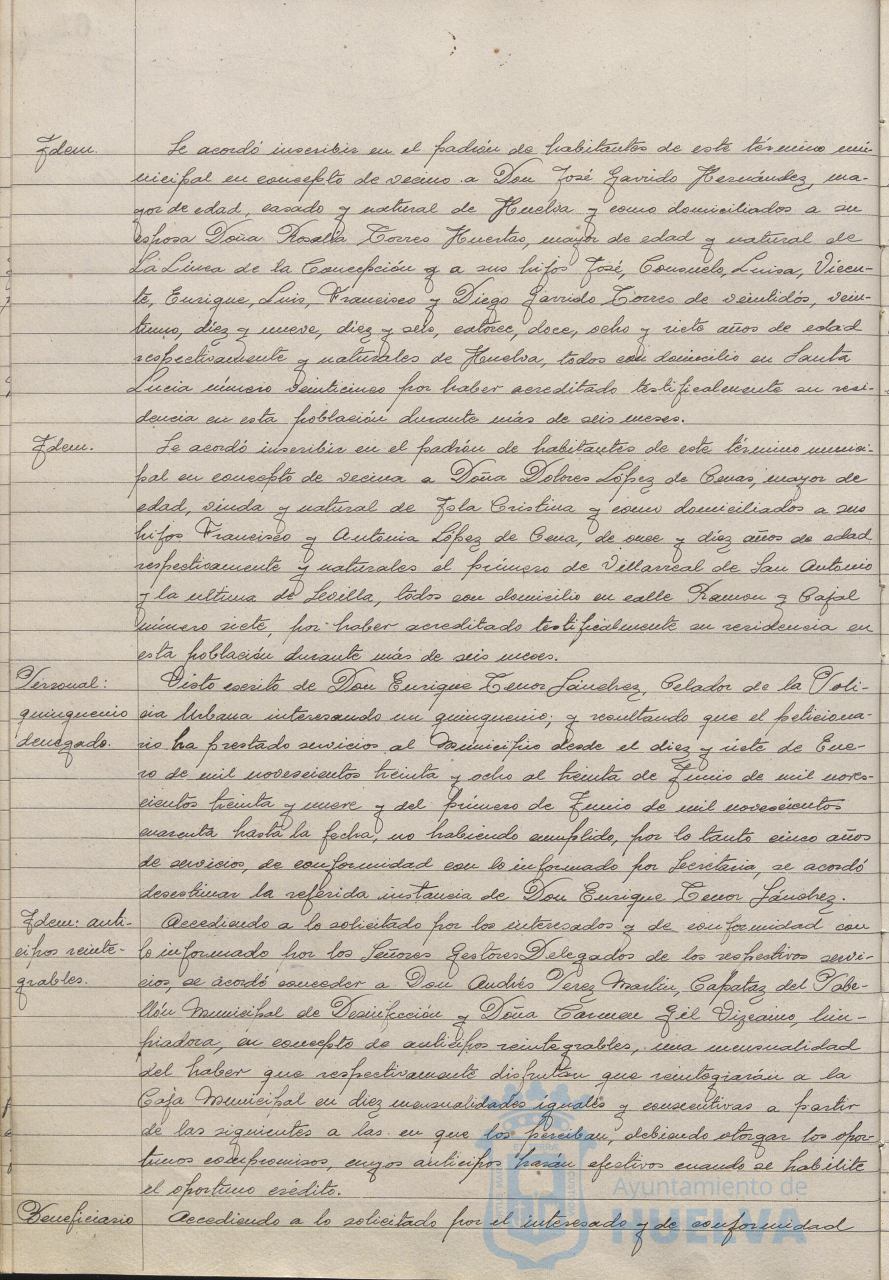 Idem.
Se acordó inscribir en el padrón de habitantes de este término mu-
nicipal en concepto de vecino a Don José Garrido Hernández, ma-
yor de edad, casado y natural de Huelva y como domiciliados a su
esposa Doña Rosalía Torres Huertas, mayor de edad y natural de
La Línea de la Concepción y a sus hijos José, Consuelo, Luisa, Vicen-
te, Enrique, Luis, Francisco y Diego Garrido Torres de veintidós, vein-
tiuno, diez y nueve, diez y seis, catorce, doce, ocho y siete años de edad
respectivamente y naturales de Huelva, todos con domicilio en Santa
Lucia número veinticinco por haber acreditado testificalmente su resi-
dencia en esta población durante más de seis meses.
Idem.
Se acordó inscribir en el padrón de habitantes de este término munici-
pal en concepto de vecina a Doña Dolores López de Cenas, mayor de
edad, viuda y natural de Isla Cristina y como domiciliados a sus
hijos Francisco y Antonia López de Cena, de once y diez años de edad
respectivamente y naturales el primero de Villarreal de San Antonio
y la ultima de Sevilla, todos con domicilio en calle Ramon y Cajal
número siete, por haber acreditado testificalmente su residencia en
esta población durante más de seis meses.
Personal:
quinquenio
denegado.
Visto escrito de Don Enrique Tenor Sánchez, Celador de la Poli-
cia Urbana interesando un quinquenio; y resultando que el peticiona-
rio ha prestado servicios al Municipio desde el diez y siete de Ene-
ro de mil novescientos treinta y ocho al treinta de Junio de mil noves-
cientos treinta y nueve y del primero de Junio de mil novescientos
cuarenta hasta la fecha, no habiendo cumplido, por lo tanto cinco años
de servicios, de conformidad con lo informado por Secretaria, se acordó
desestimar la referida instancia de Don Enrique Tenor Sánchez.
Idem: anti-
cipos reinte-
grables.
Accediendo a lo solicitado por los interesados y de conformidad con
lo informado por los Señores Gestores Delegados de los respectivos servi-
cios, se acordó conceder a Don Andrés Perez Martin, Capataz del Pabe-
llón Municipal de Desinfección y Doña Carmen Gil Vizcaino, lim-
piadora, en concepto de anticipos reintegrables, una mensualidad
del haber que respectivamente disfrutan que reintegrarán a la
Caja Municipal en diez mensualidades iguales y consecutivas a partir
de las siguientes a las en que los perciban, debiendo otorgar los opor-
tunos compromisos, cuyos anticipos harán efectivos cuando se habilite
el oportuno crédito.
Beneficiario
Accediendo a lo solicitado por el interesado y de conformidad
Ayuntamiento de
HUELVA